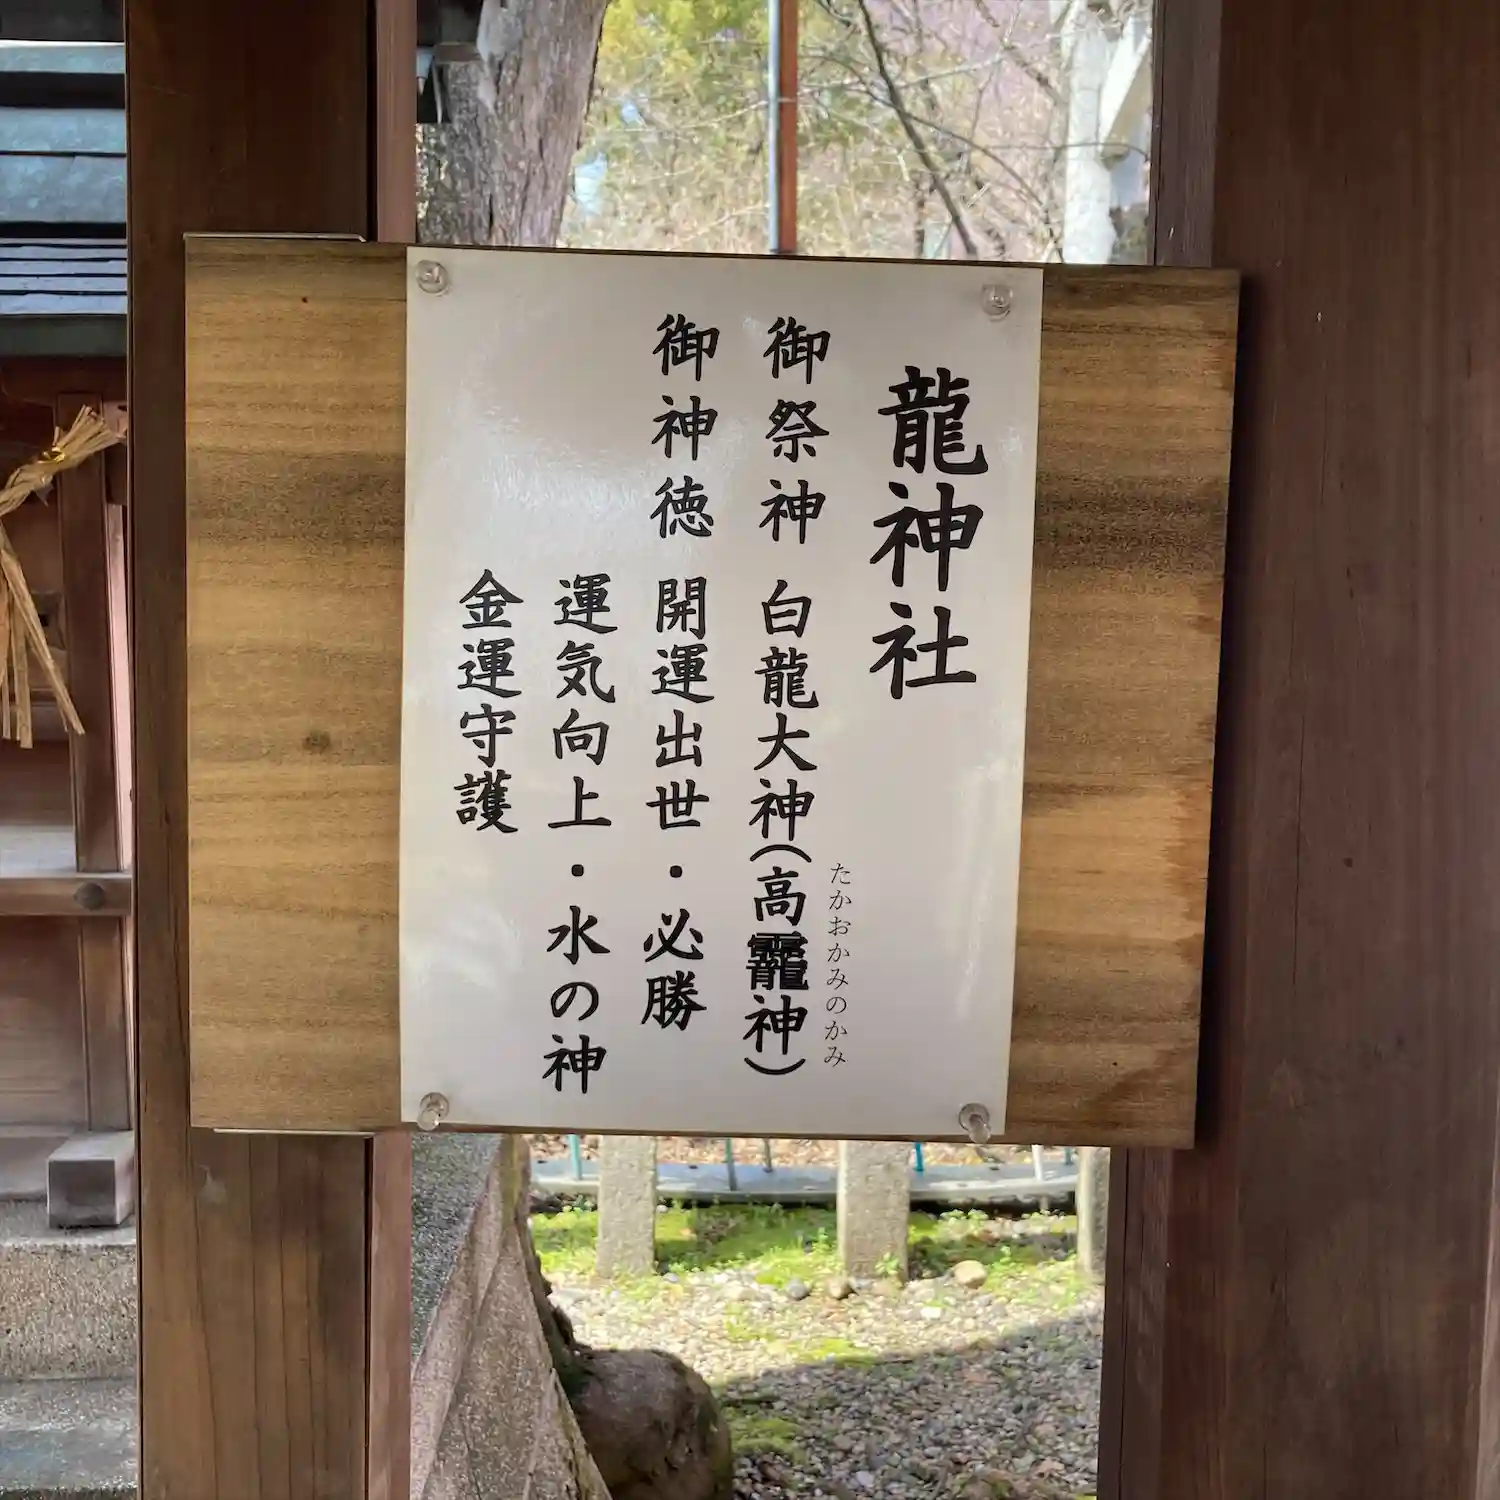 龍神社
御祭神 白龍大神(高龗神)
たかおかみのかみ
御神徳 開運出世・必勝
運気向上・水の神
金運守護